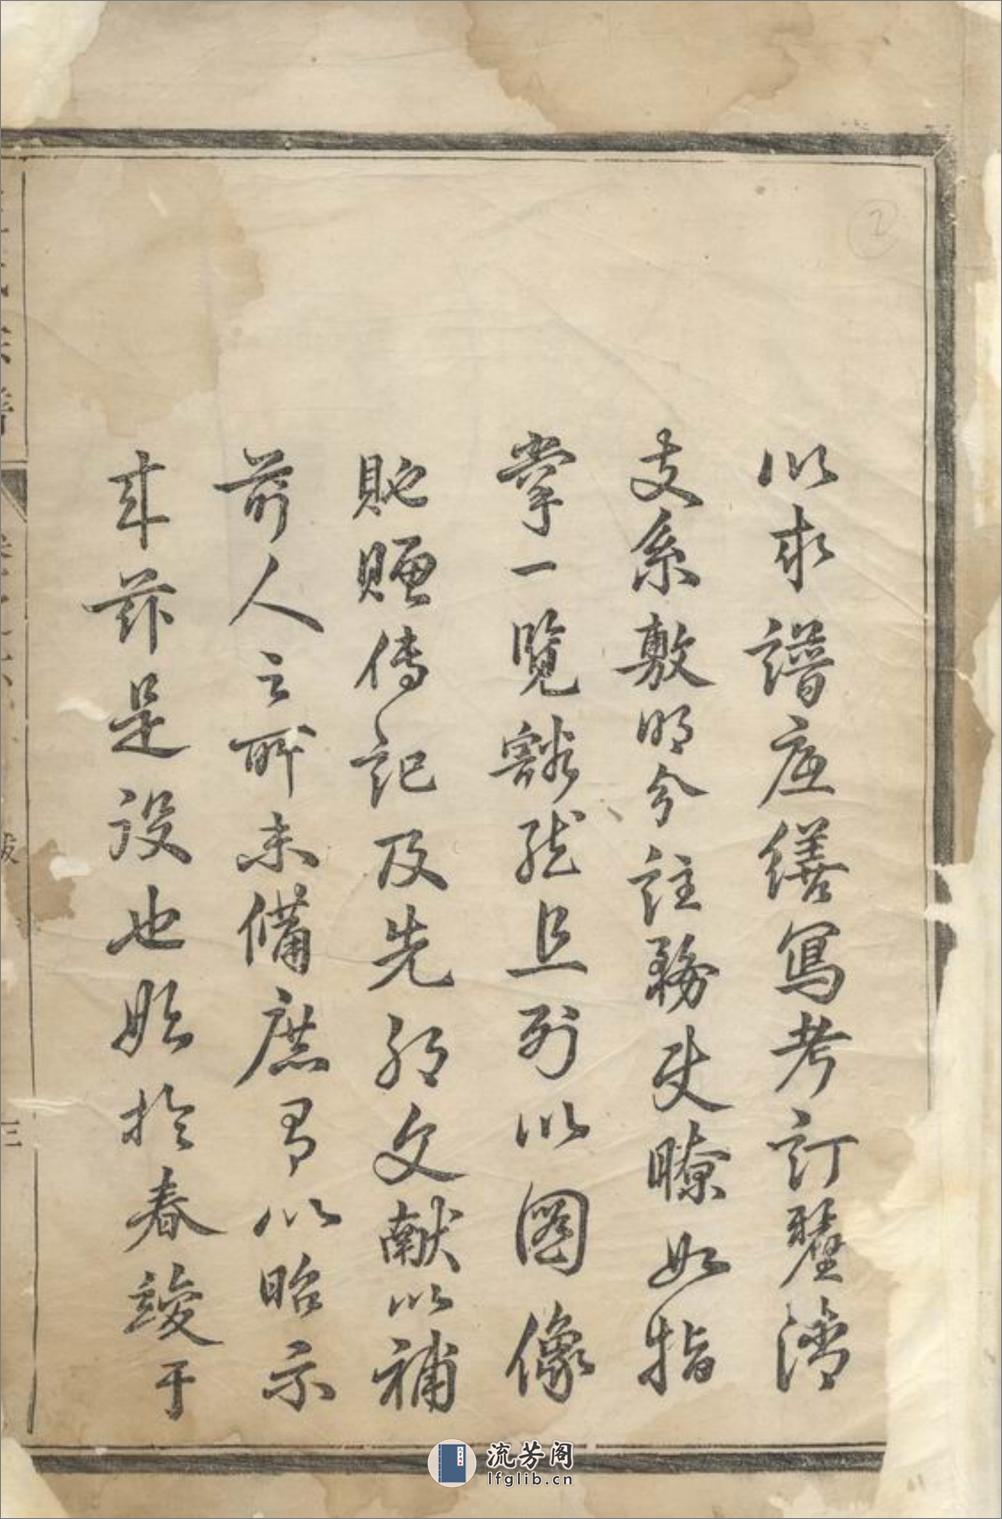 2
以求譜繕寫考訂釐清
支系敷明分註務使瞭如指
掌一覽豁然且列以圖像
貤贈傳記及先文献以補
前人之所未備庶有以昭示
来兹是設也始於春竣于
跋
三
流芳阁
lfglib.cn